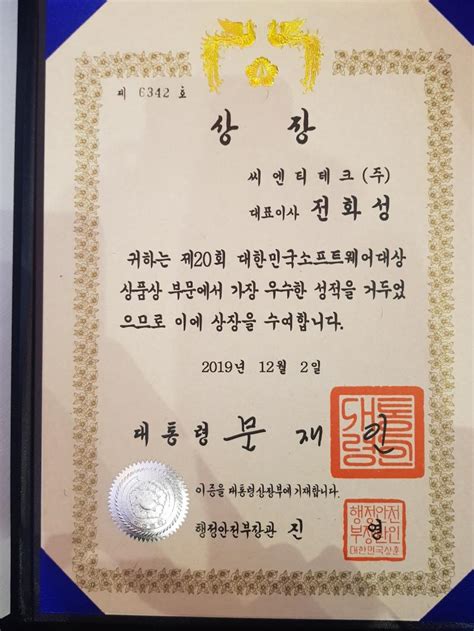 제 6342 호
상 장
씨엔티테크(주)
대표이사 전화성
귀하는 제20회 대한민국소프트웨어대상
상품상 부문에서 가장 우수한 성적을 거두었
으므로 이에 상장을 수여합니다.
2019년 12월 2일
대통령 문 재 인
이 증을 대통령상장부에 기재합니다.
행정안전부장관 진 영
행정안전
부장관인
대한민국상훈